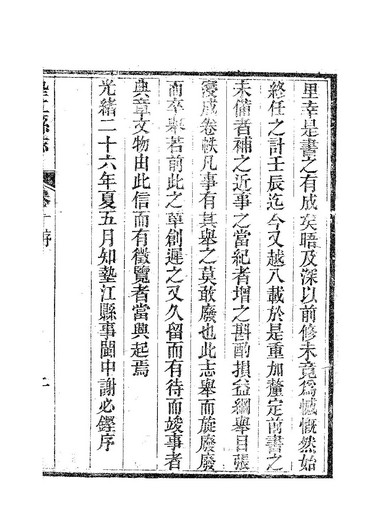 里幸是書之有成矣晤及深以前修未竟為憾慨然始
終任之計壬辰迄今又越八載於是重加釐定前書之
未備者補之近事之當紀者增之斟酌損益綱舉目張
爰成卷帙凡事有其舉之莫敢廢也此志舉而旋廢廢
而卒舉若前此之草創遲之又久留而有待而竣事者
典章文物由此信而有徵覽者當興起焉
光緒二十六年夏五月知墊江縣事閩中謝必鏗序
墊江縣志
卷 序